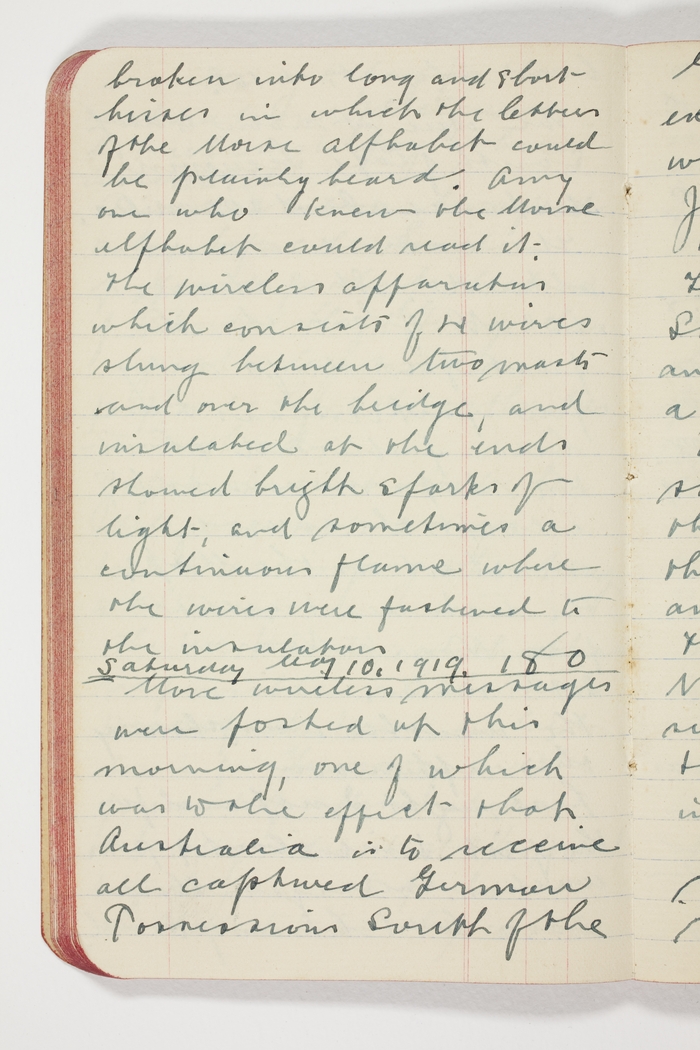 broken into long and short
hisses in which the letters
of the Morse alphabet could
be plainly heard. Any
one who knew the Morse
alphabet could read it.
The wireless apparatus
which consists of 4 wires
slung between two masts
and over the bridge, and
insulated at the ends
showed bright sparks of
light, and sometimes a
continuous flame where
the wires were fastened to
the insulators
Saturday May 10. 1919. 180
More wireless messages
were posted up this
morning, one of which
was to the effect that
Australia is to receive
all captured German
Possessions South of the